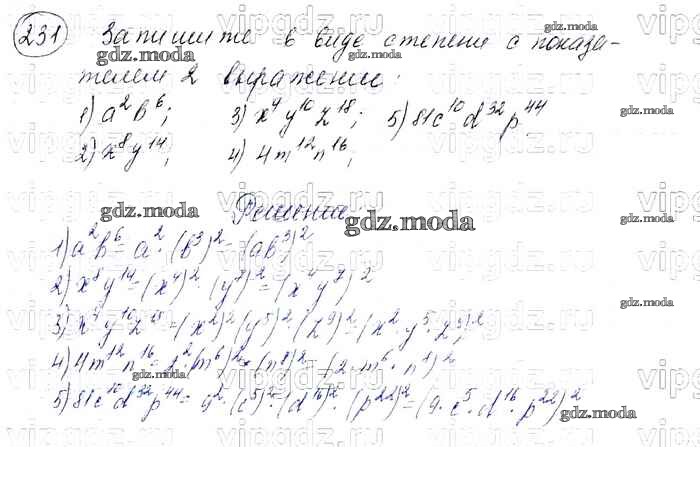 231 Запишите в виде степени с показа-
телем 2 выражение:
1) a²b⁶; 3) x⁴y¹⁰z¹⁸; 5) 81c¹⁰d³²p⁴⁴
2) x⁸y¹⁴; 4) 4m¹²n¹⁶;
Решение
1) a²b⁶ = a² · (b³)² = (ab³)²
2) x⁸y¹⁴ = (x⁴)² · (y⁷)² = (x⁴y⁷)²
3) x⁴y¹⁰z¹⁸ = (x²)² (y⁵)² · (z⁹)² = (x² · y⁵ · z⁹)²
4) 4m¹²n¹⁶ = 2² · (m⁶)² · (n⁸)² = (2 · m⁶ · n⁸)²
5) 81c¹⁰d³²p⁴⁴ = 9² · (c⁵)² · (d¹⁶)² · (p²²)² = (9 · c⁵ · d¹⁶ · p²²)²
gdz.moda
vipgdz.ru